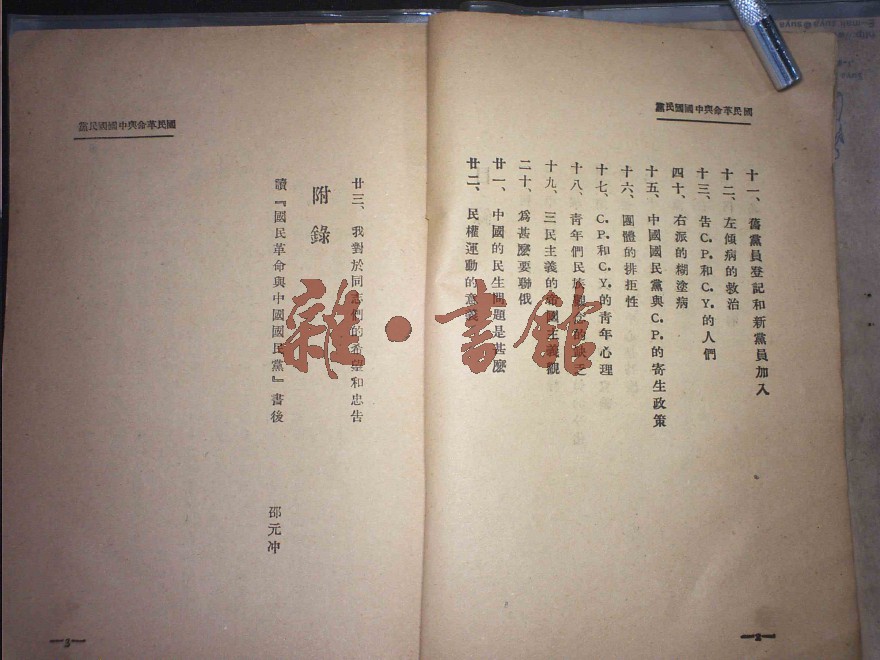 國民革命與中國國民黨
十一、舊黨員登記和新黨員加入
十二、左傾病的救治
十三、告C.P.和C.Y.的人們
四十、右派的糊塗病
十五、中國國民黨與C.P.的寄生政策
十六、團體的排拒性
十七、C.P.和C.Y.的青年心理
十八、青年們民族觀念的缺乏
十九、三民主義的帝國主義觀
二十、爲甚麼要聯俄
廿一、中國的民生問題是甚麼
廿二、民權運動的意義
—2—
國民革命與中國國民黨
廿三、我對於同志們的希望和忠告
附錄
讀『國民革命與中國國民黨』書後
邵元冲
—3—
雜·書館